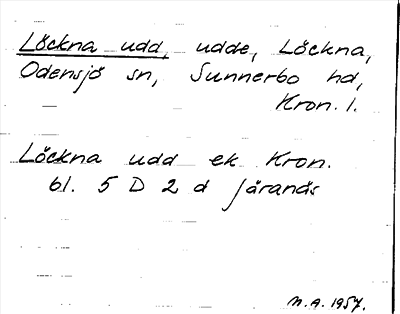 Löckna udd, udde, Löckna,
Odensjö sn, Sunnerbo hd,
Kron. l.
Löckna udd ek Kron.
bl. 5 D 2 d Järanäs
M.A. 1957.